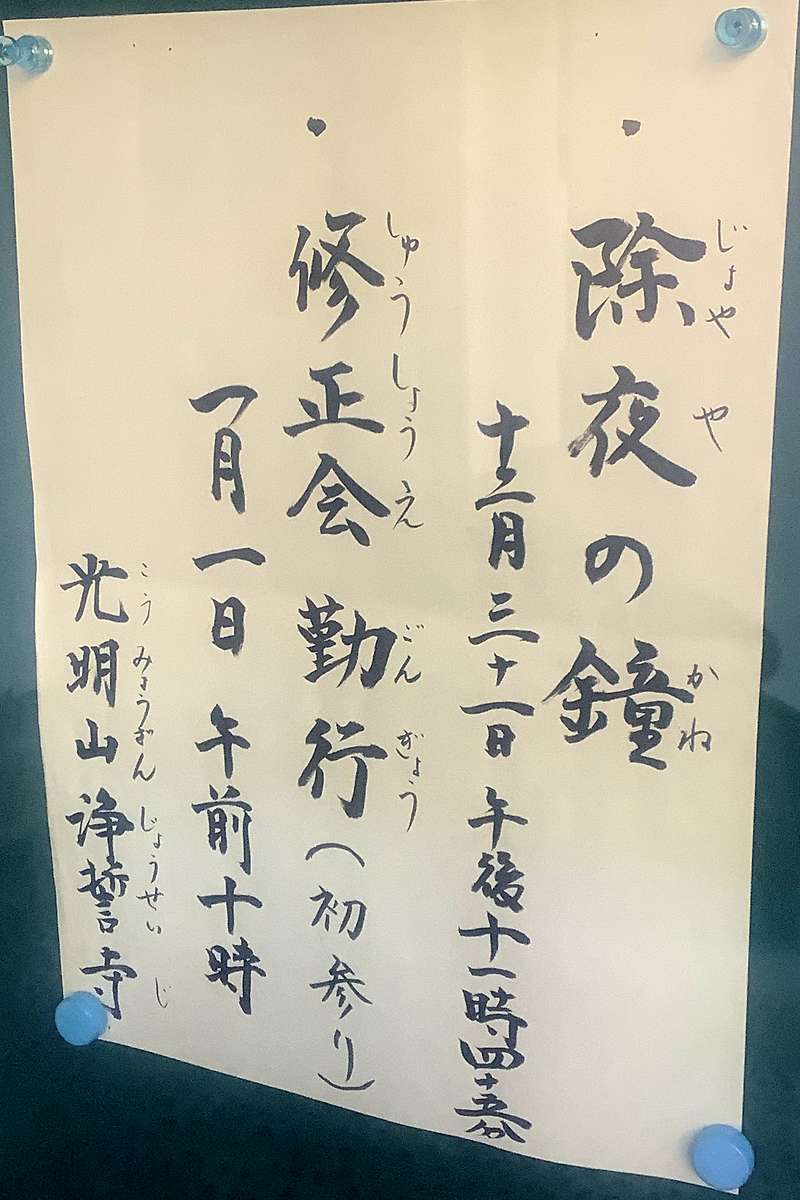 じょや や かね
・除夜の鐘
十二月三十一日 午後十一時四十五分
しゅうしょうえ ごんぎょう
・修正会 勤行(初参り)
一月一日 午前十時
こうみょうざん じょうせい じ
光明山 浄誓寺